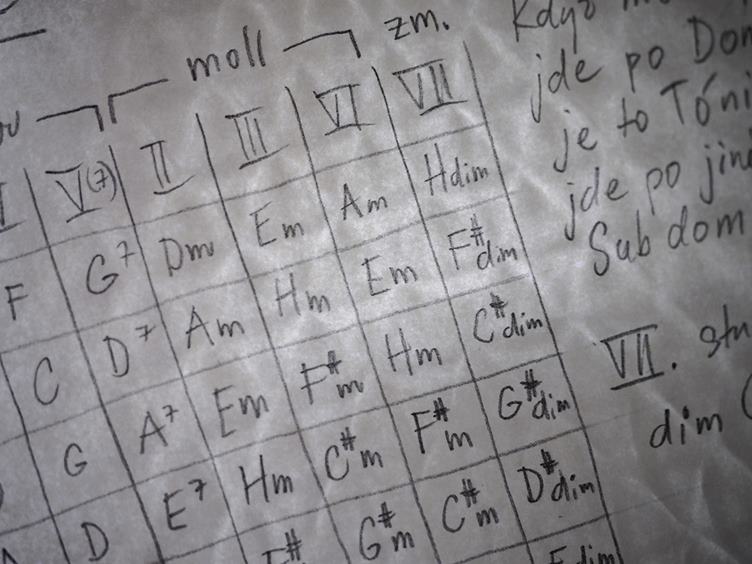 moll zm.
V(7) II III VI VII
F G7 Dm Em Am Hdim
C D7 Am Hm Em F#dim
G A7 Em F#m Hm C#dim
D E7 Hm C#m F#m G#dim
F# G#m C#m D#dim
Když
jde po Dom
je to Tóni
jde po jin
Sub dom
VII. stu
dim (